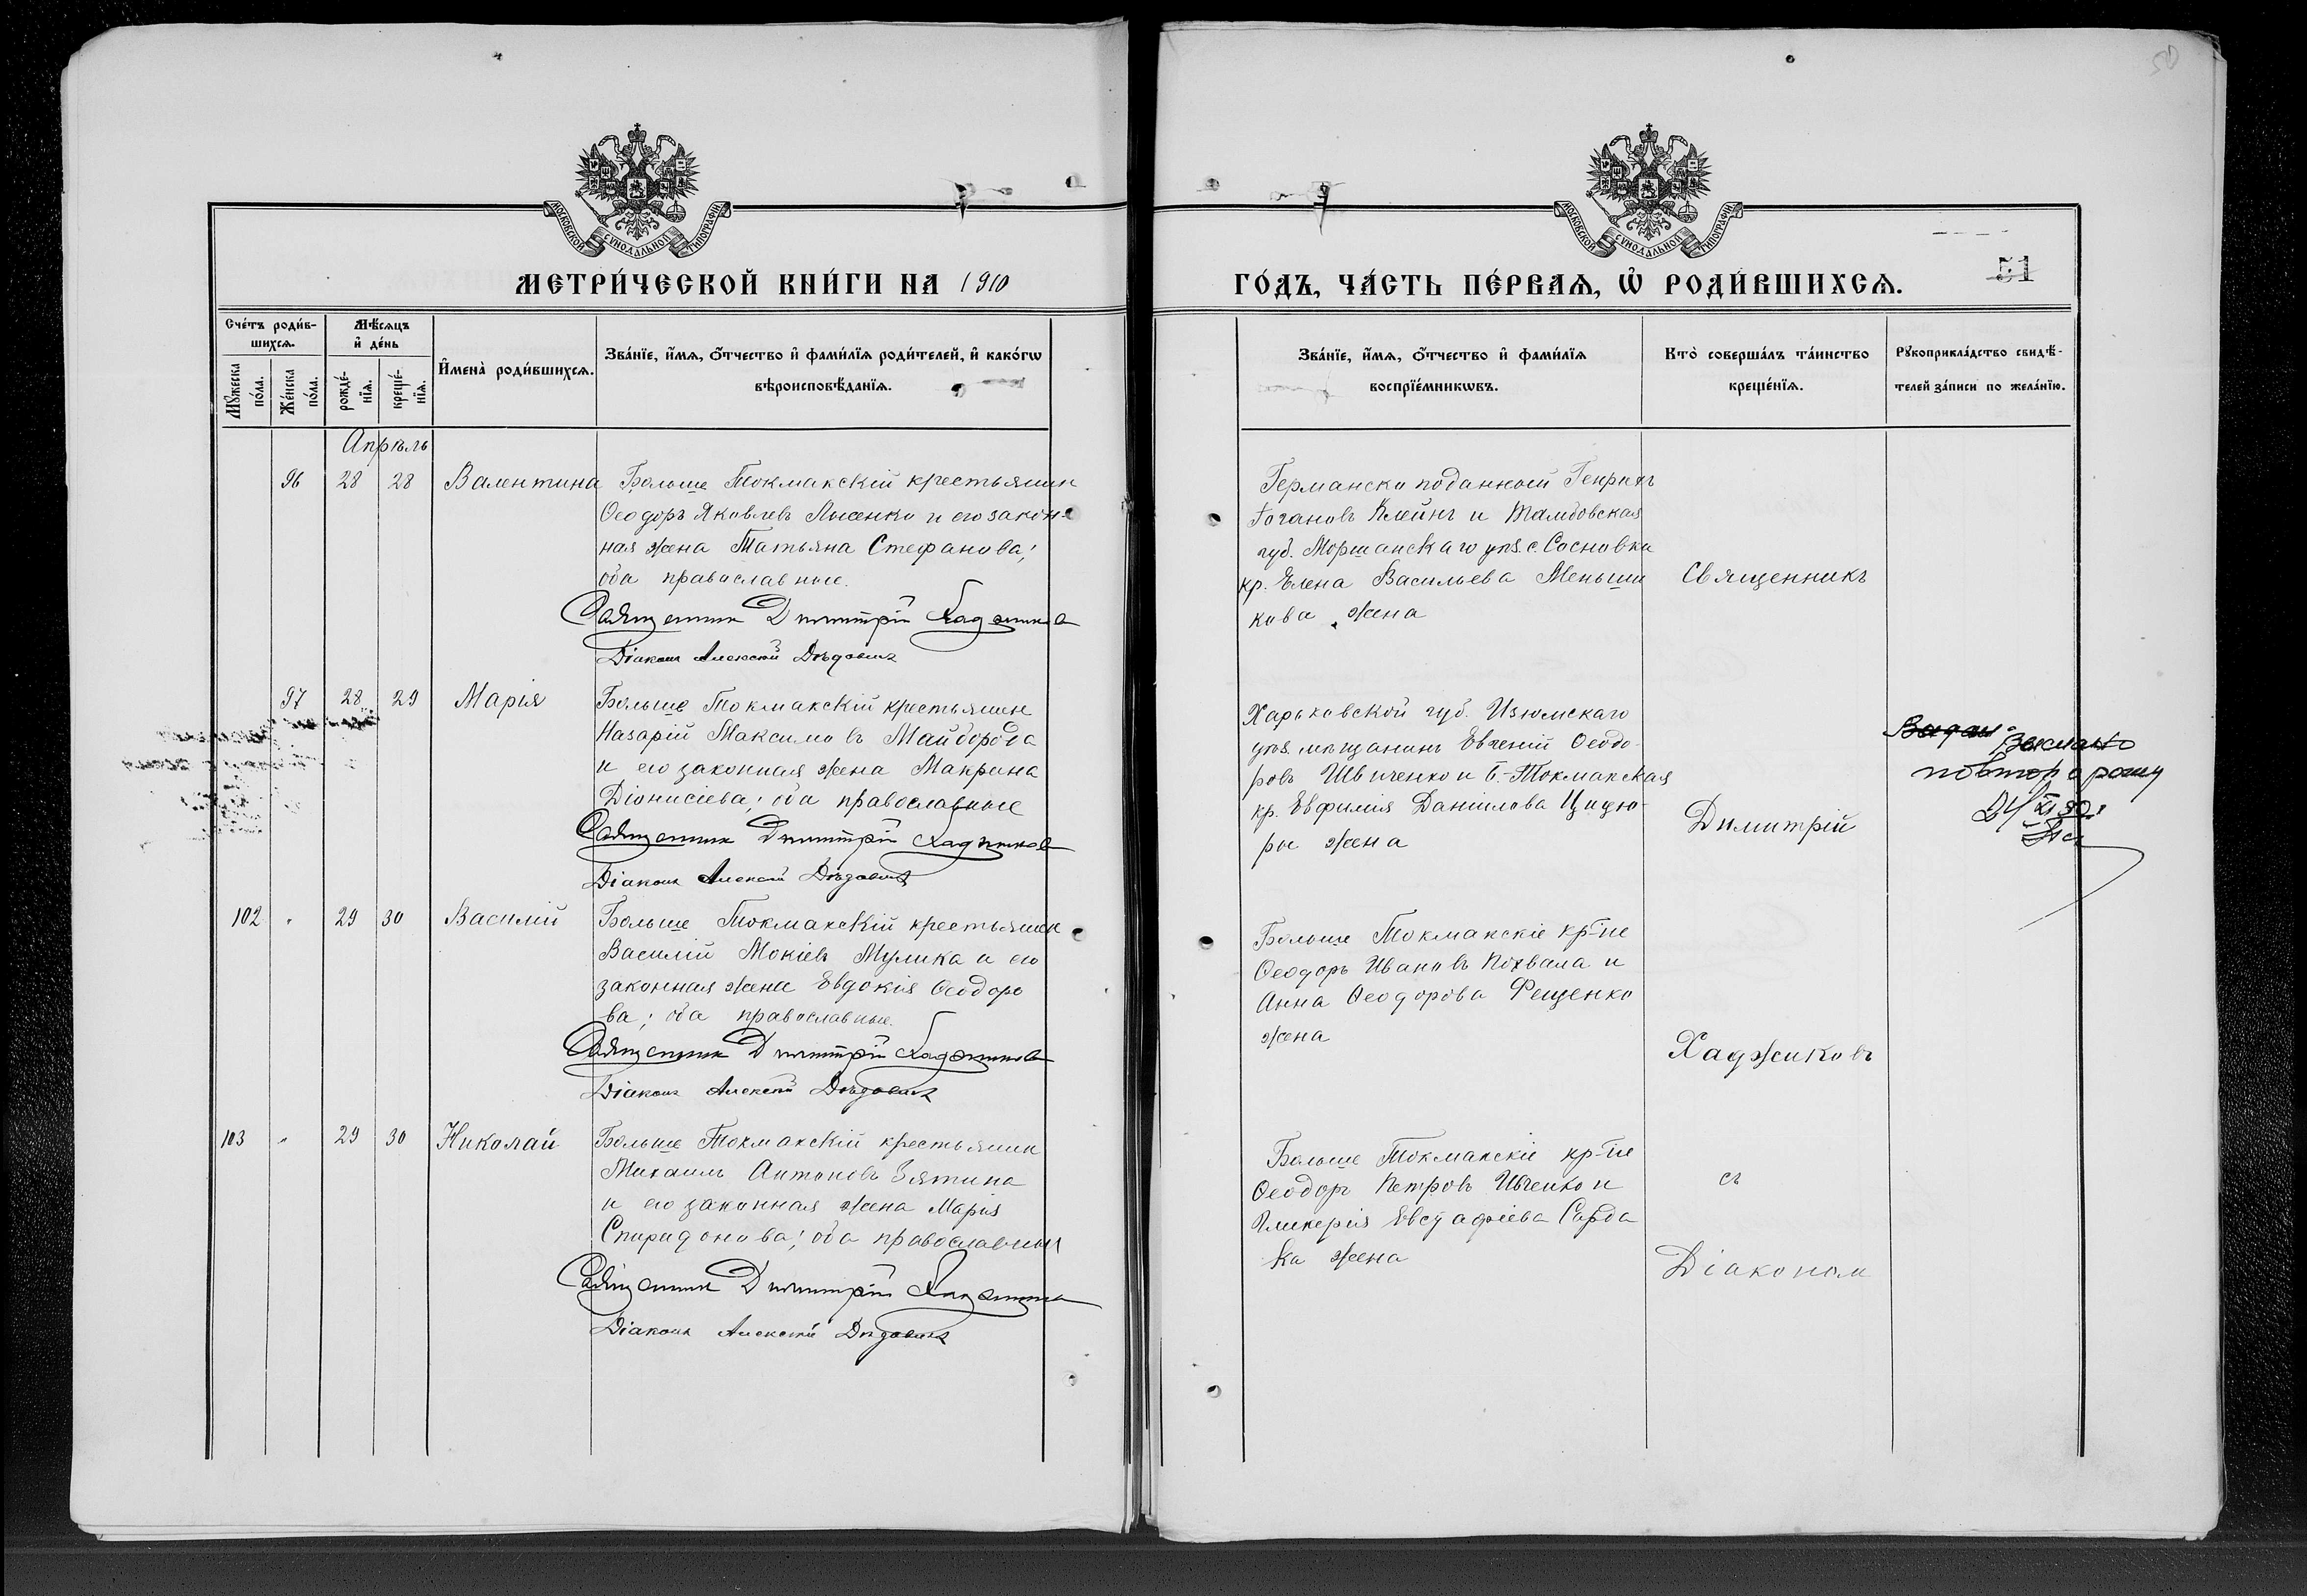 50
МОСКОВСКОЙ СѴНОДАЛЬНОЙ ТИПОГРАФІИ
МОСКОВСКОЙ СѴНОДАЛЬНОЙ ТИПОГРАФІИ
МЕТРИ́ЧЕСКОЙ КНИ́ГИ НА 1910
ГО́ДЪ, ЧА́СТЬ ПЕ́РВАѦ, Ѽ РОДИ́ВШИХСѦ.
51
Сче́тъ роди́в-
шихсѧ.
Мꙋ́жеска по́ла.
Же́нска по́ла.
Мѣ́сѧцъ
и҆ де́нь
рожде́-
нїѧ.
креще́-
нїѧ.
И҆мена̀ роди́вшихсѧ.
Зва́нїе, и҆́мѧ, ѻ҆́тчество и҆ фами́лїѧ роди́телей, и҆ како́гѡ
вѣроисповѣ́данїѧ.
Зва́нїе, и҆́мѧ, ѻ҆́тчество и҆ фами́лїѧ
воспрїе́мникѡвъ.
Кто̀ соверша́лъ та́инство
креще́нїѧ.
Рꙋкоприкла́дство свидѣ́-
телей за́писи по жела́нїю.
Апрѣль
96 28 28 Валентина
Больше Токмакскій крестьянин
Ѳеодоръ Яковлевъ Лысенко и его закон-
ная жена Татьяна Стефанова;
оба православные.
Священник Димитрій Хаджиковъ
Діаконъ Алексій Дѣдовичъ
Германско поданной Генрихъ
Іогановъ Клейнъ и Тамбовская
губ. Моршанскаго уѣз. с. Сосновки
кр. Елена Васильева Меньши
кова жена
Священникъ
97 28 29 Марія
Больше Токмакскій крестьянин
Назарій Максимовъ Майборода
и его законная жена Макрина
Діонисіева; оба православные
Священник Димитрій Хаджиковъ
Діаконъ Алексій Дѣдовичъ
Харьковской губ. Изюмскаго
уѣз. мѣщанинъ Евгеній Ѳеодо-
ровъ Шевченко и Б.-Токмакская
кр. Евфимія Даніилова Цицю-
ры жена
Димитрій
повтор
102 " 29 30 Василій
Больше Токмакскій крестьянин
Василій Мокіевъ Мулика и его
законная жена Евдокія Ѳеодоро
ва; оба православные.
Священник Димитрій Хаджиковъ
Діаконъ Алексій Дѣдовичъ
Больше Токмакскіе кр-не
Ѳеодоръ Ивановъ Похвала и
Анна Ѳеодорова Фещенко
жена
Хаджиковъ
103 " 29 30 Николай
Больше Токмакскій крестьянин
Михаилъ Антоновъ Зятина
и его законная жена Марія
Спиридонова; оба православные
Священник Димитрій Хаджиковъ
Діаконъ Алексій Дѣдовичъ
Больше Токмакскіе кр-не
Ѳеодоръ Петровъ Ивченко и
Гликерія Евстафіева Сарда
ка жена
съ
Діаконом